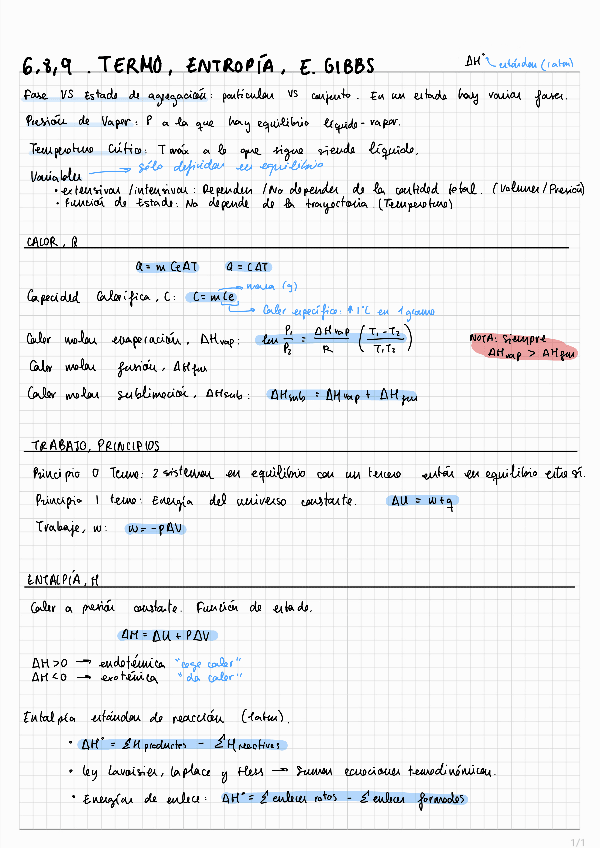 6,8,9 . TERMO, ENTROPÍA, E. GIBBS
ΔH° estándar (1atm)
Fase VS Estado de agregación: particular VS conjunto. En un estado hay varias fases.
Presión de Vapor: P a la que hay equilibrio líquido-vapor.
Temperatura Crítica: T máx a la que sigue siendo líquido.
Variables → sólo definidas en equilibrio
• extensivas / intensivas: Dependen / No dependen de la cantidad total. (Volumen / Presión)
• Función de Estado: No depende de la trayectoria. (Temperatura)
CALOR, Q
Q = m Ce ΔT Q = C ΔT
Capacidad Calorífica, C: C = m Ce
masa (g)
Calor específico: ↑ 1°C en 1 gramo
Calor molar evaporación, ΔHvap: ln P₁/P₂ = ΔHvap/R (T₁-T₂/T₁T₂)
NOTA: Siempre
ΔHvap > ΔHfus
Calor molar fusión, ΔHfus
Calor molar sublimación, ΔHsub: ΔHsub = ΔHvap + ΔHfus
TRABAJO, PRINCIPIOS
Principio 0 Termo: 2 sistemas en equilibrio con un tercero están en equilibrio entre sí.
Principio 1 termo: Energía del universo constante. ΔU = w+q
Trabajo, w: w = -PΔV
ENTALPÍA, H
Calor a presión constante. Función de estado.
ΔH = ΔU + PΔV
ΔH>0 → endotérmica "coge calor"
ΔH<0 → exotérmica "da calor"
Entalpía estándar de reacción (1atm).
• ΔH° = ΣH productos - ΣH reactivos
• Ley Lavoisier, Laplace y Hess → Suman ecuaciones termodinámicas.
• Energías de enlace: ΔH° = Σ enlaces rotos - Σ enlaces formados
1/1